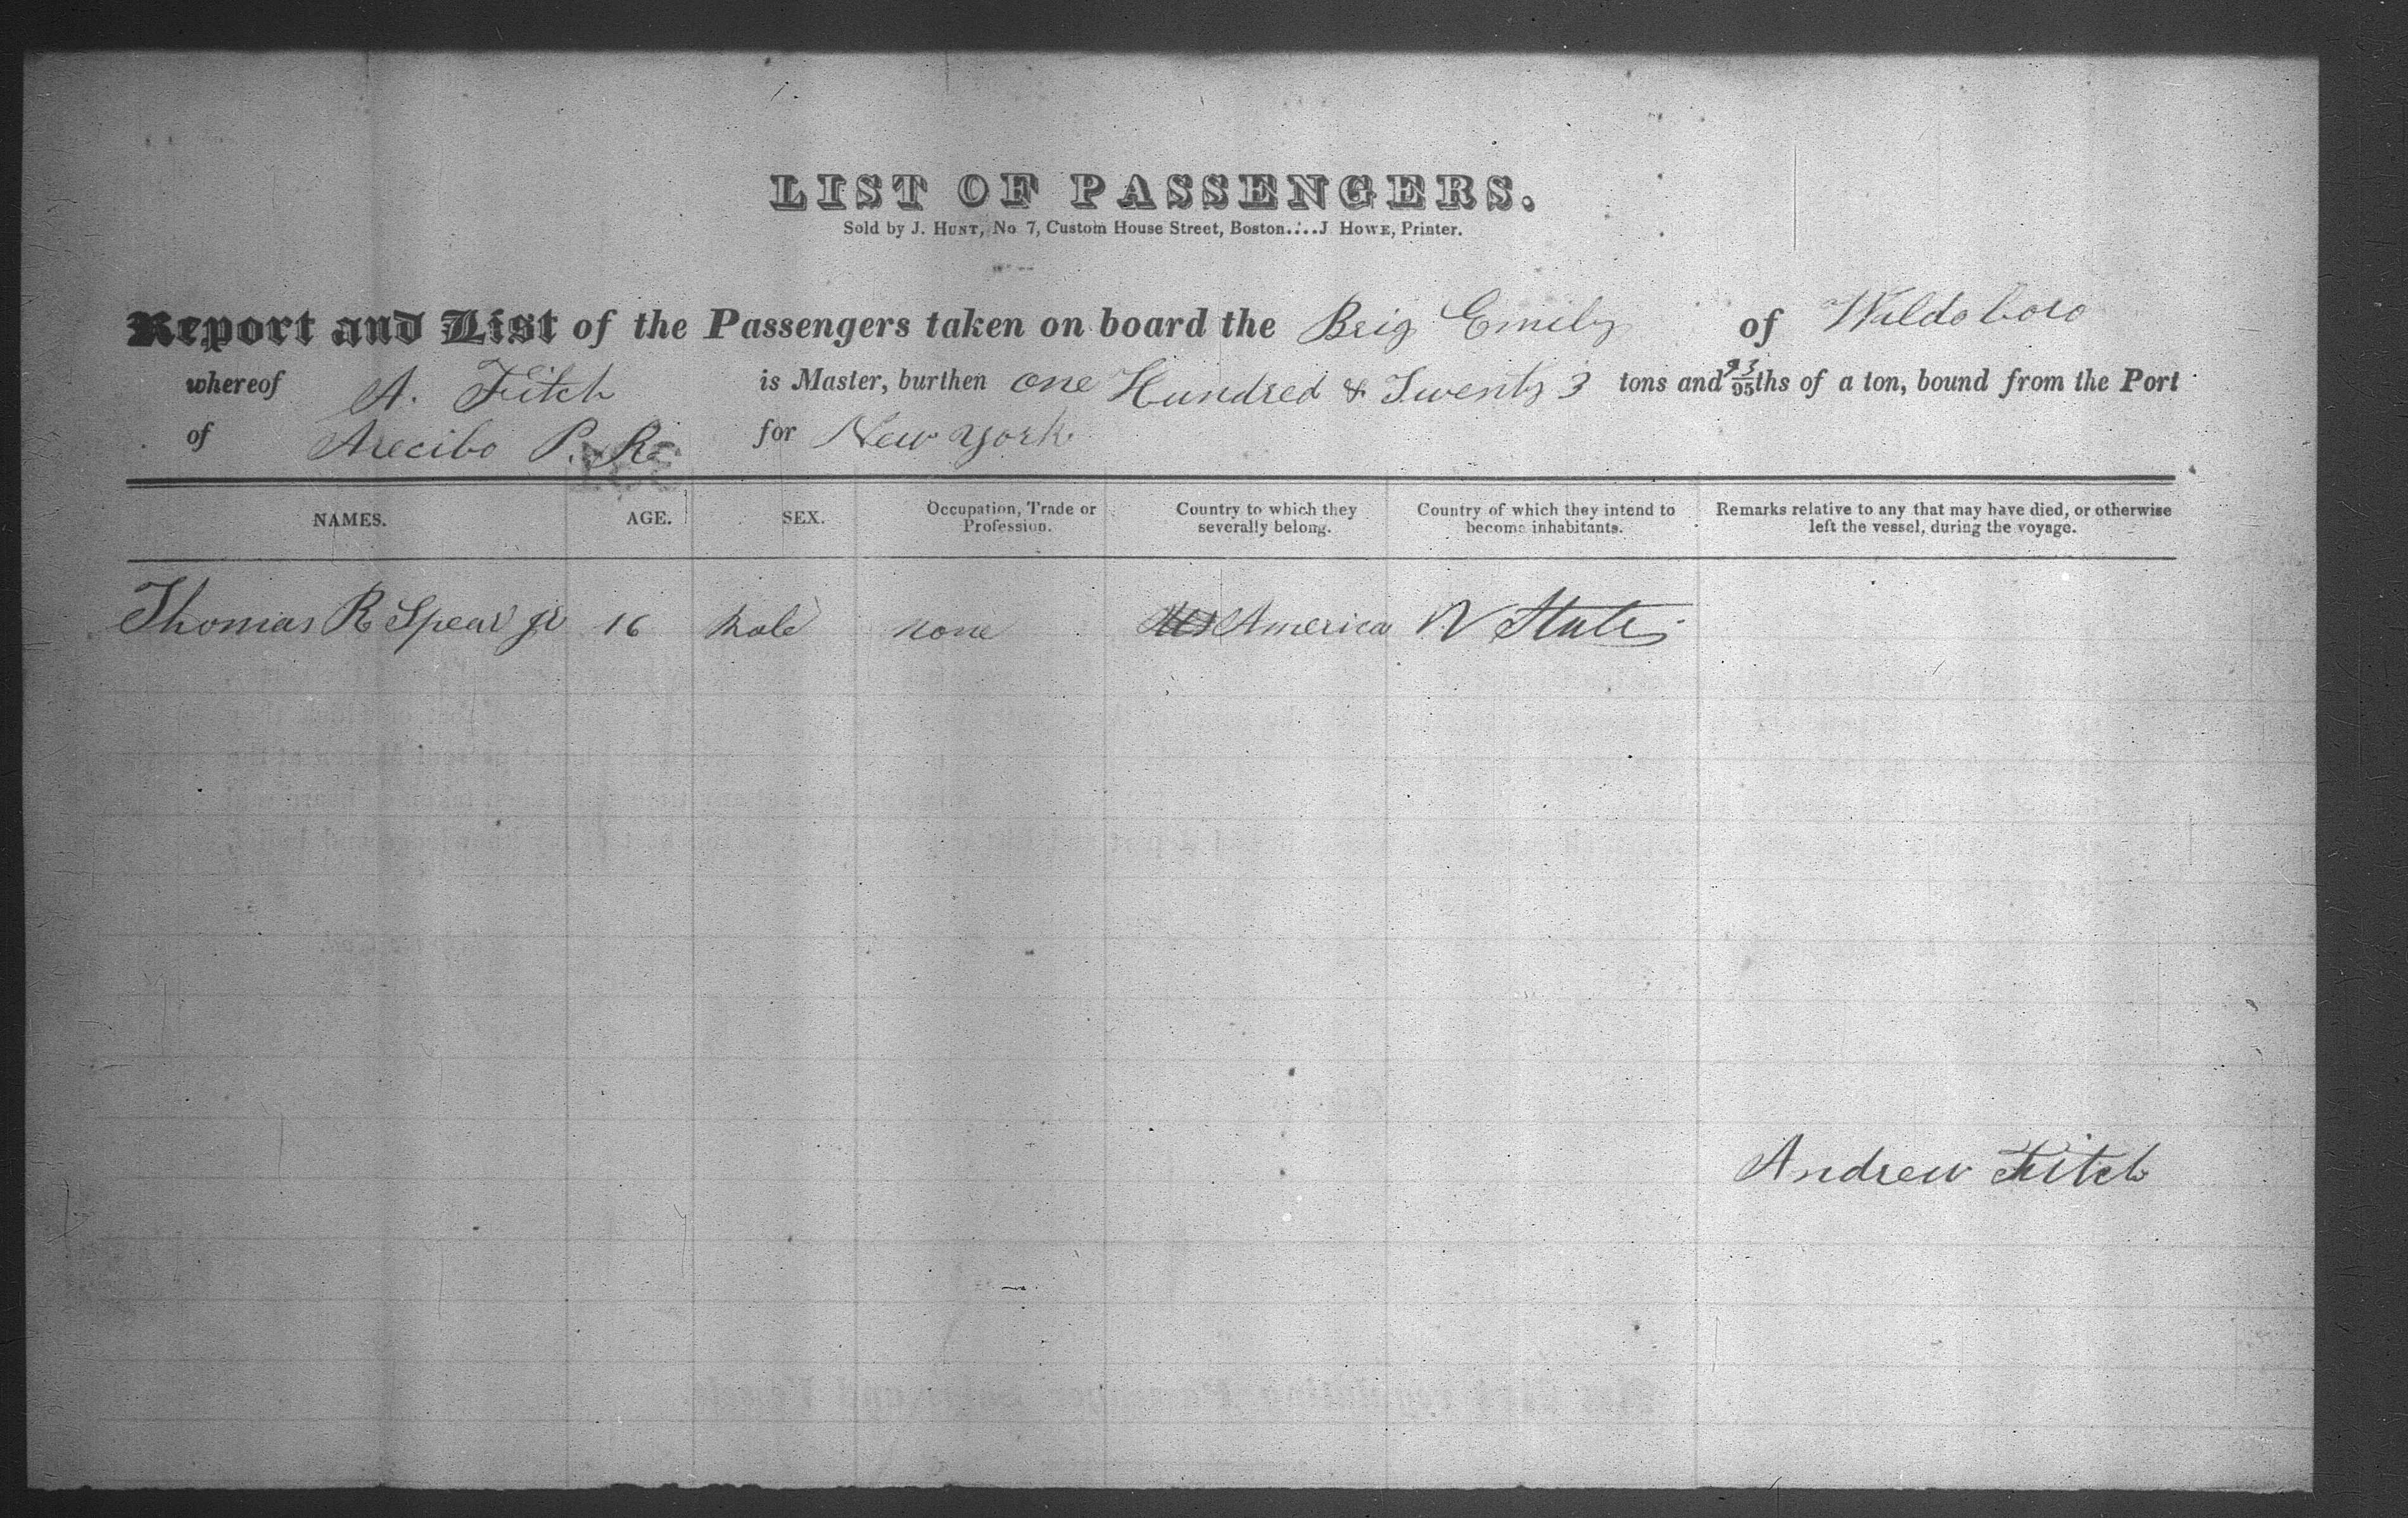 LIST OF PASSENGERS.
Sold by J. HUNT, No 7, Custom House Street, Boston....J HOWE, Printer.
Report and List of the Passengers taken on board the Brig Emily of Waldoboro
whereof A. Fitch is Master, burthen one Hundred & Twenty 3 tons and 93/95ths of a ton, bound from the Port
of Arecibo P. R. for New York
NAMES. AGE. SEX. Occupation, Trade or Profession. Country to which they severally belong. Country of which they intend to become inhabitants. Remarks relative to any that may have died, or otherwise left the vessel, during the voyage.
Thomas R Spear Jr 16 Male none America States
Andrew Fitch